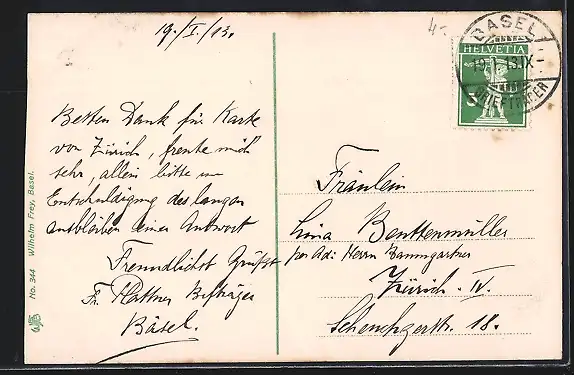 19./I./13.
4.-
BASEL 1
19.I.13.IX-
BRIEFTRÄGER
HELVETIA
5
Besten Dank für Karte
von Zürich, freute mich
sehr, allein bitte um
Entschuldigung des langen
ausbleiben einer Antwort
Freundlichst Grüßt
Fr. Hattner Briefträger
Basel.
Fräulein
Lina Benttenmüller
per Ad: Herrn Baumgartner
Zürich. IV.
Scheuchzerstr. 18.
No. 344 Wilhelm Frey, Basel.